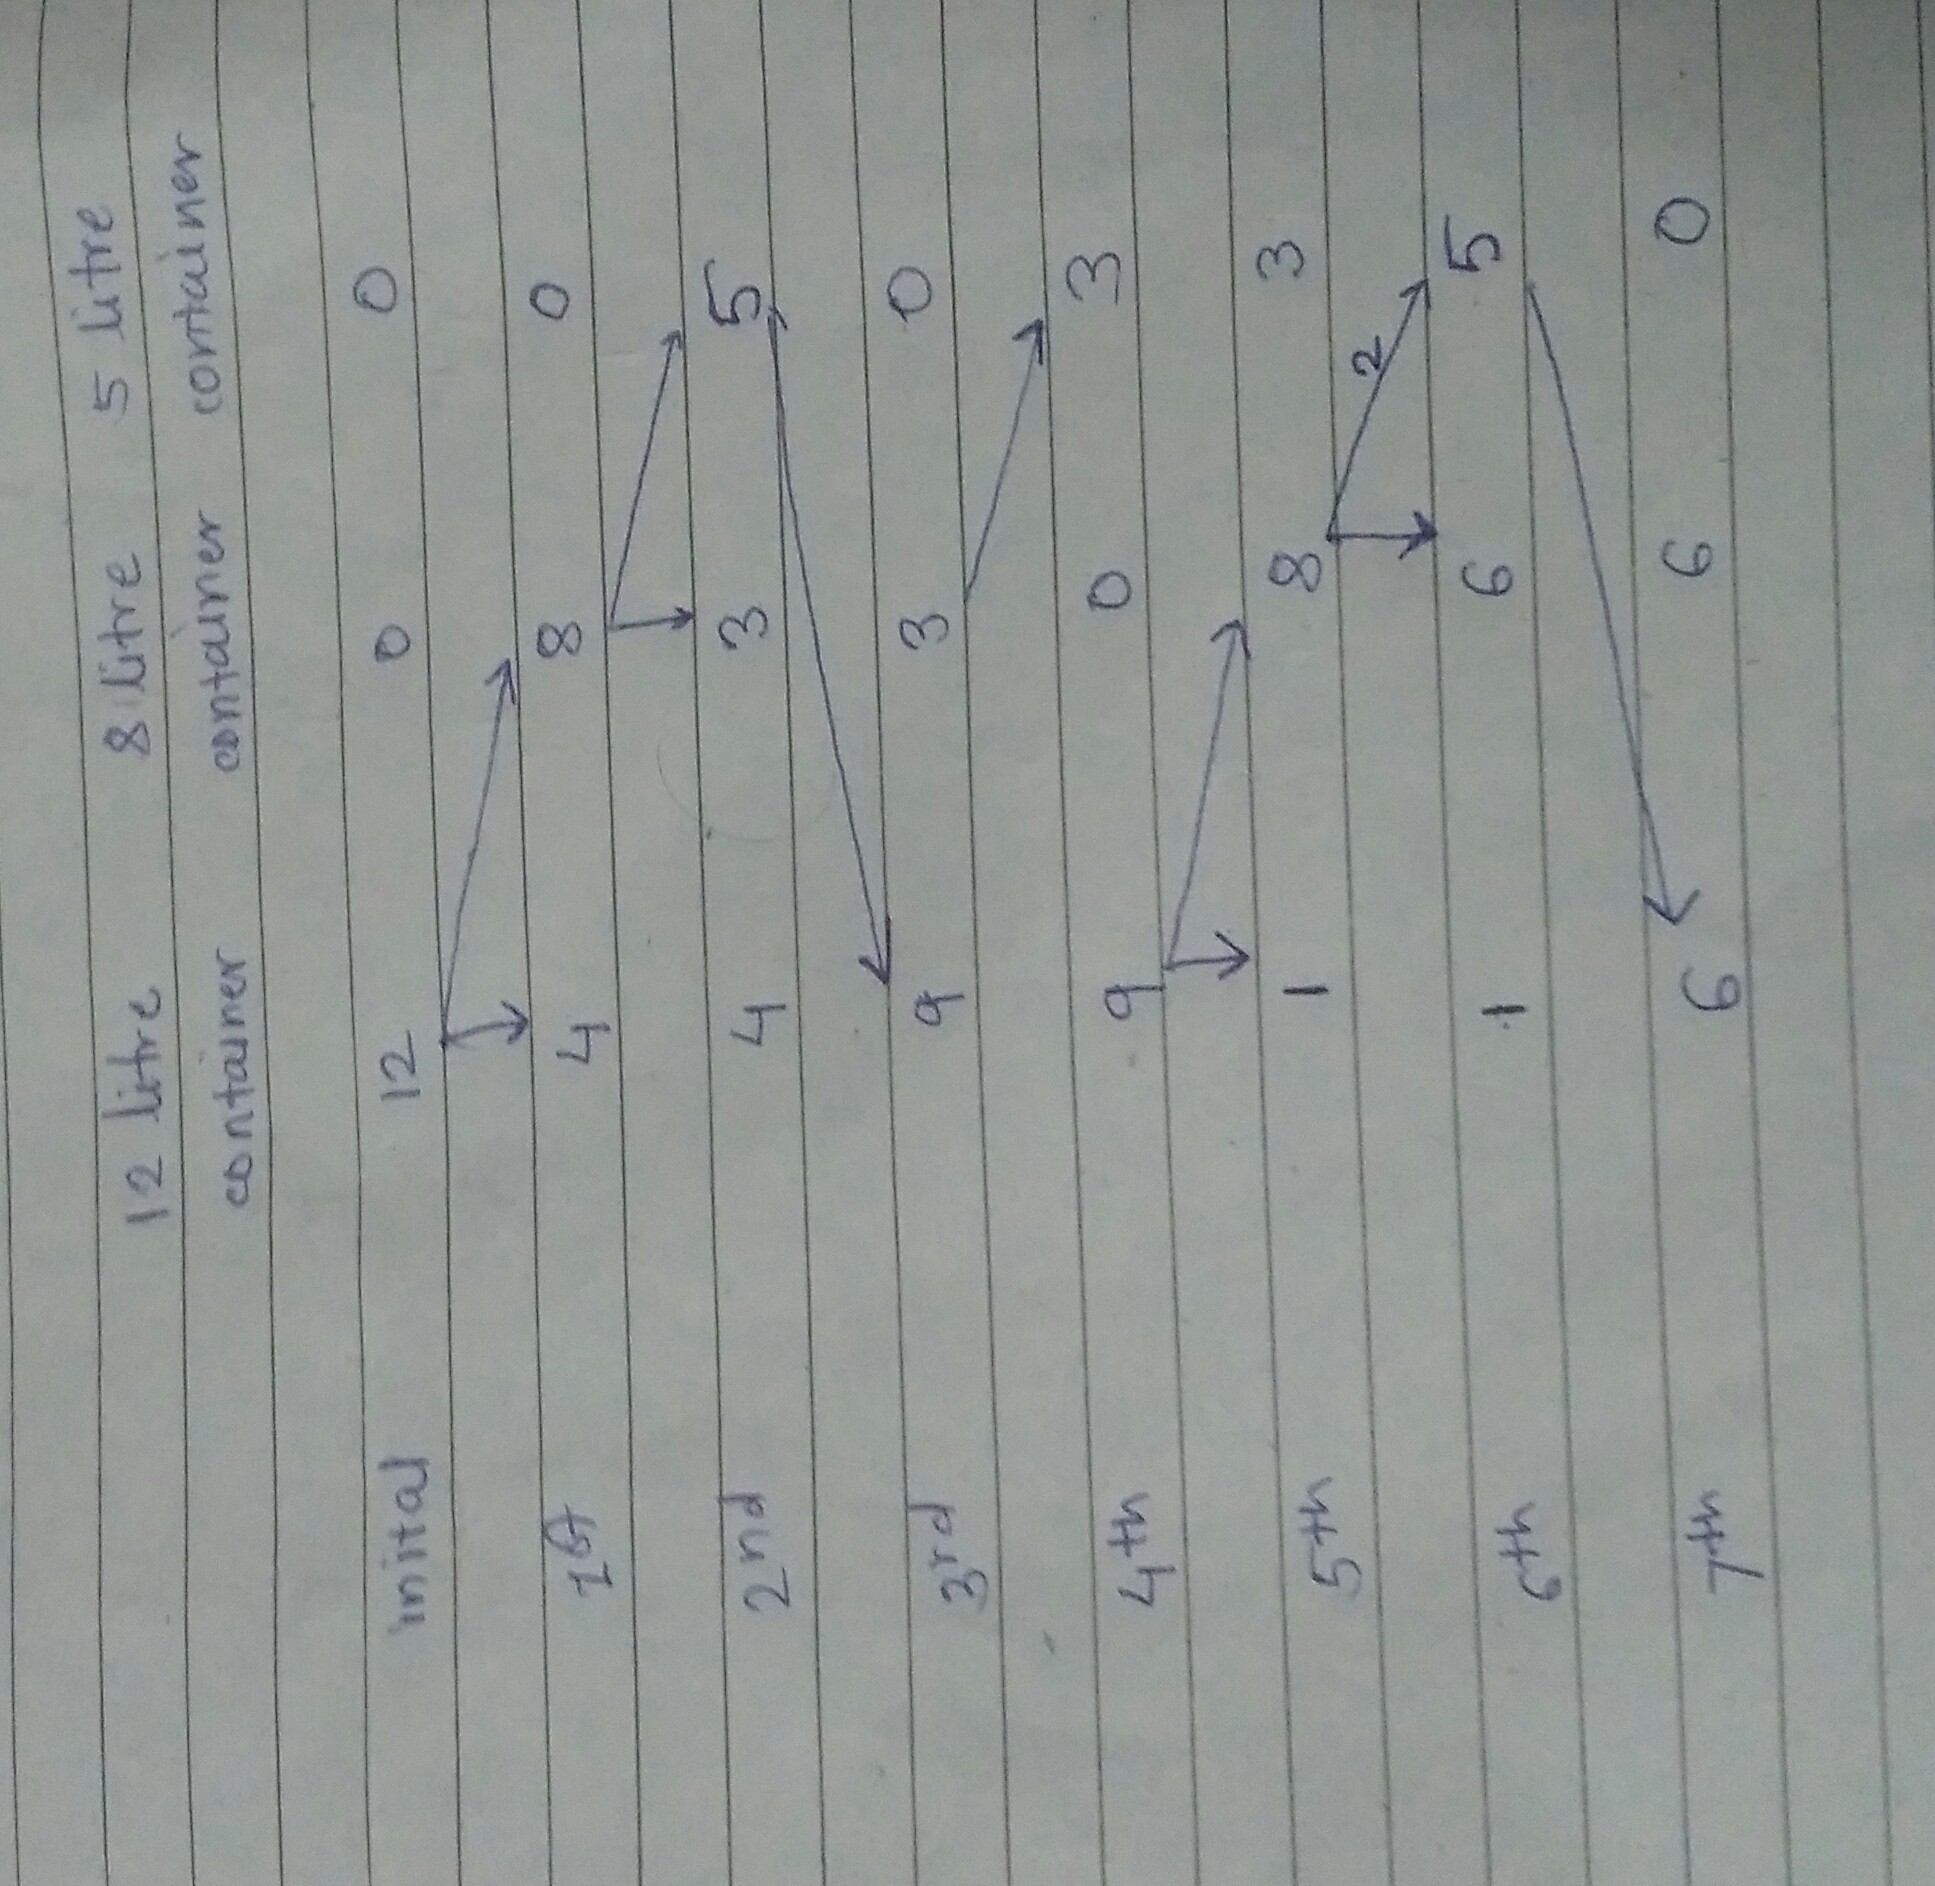 12 litre 8 litre 5 litre
container container container
inital 12 0 0
1st 4 8 0
2nd 4 3 5
3rd 9 3 0
4th 9 0 3
5th 1 8 3
2
6th 1 6 5
7th 6 6 0